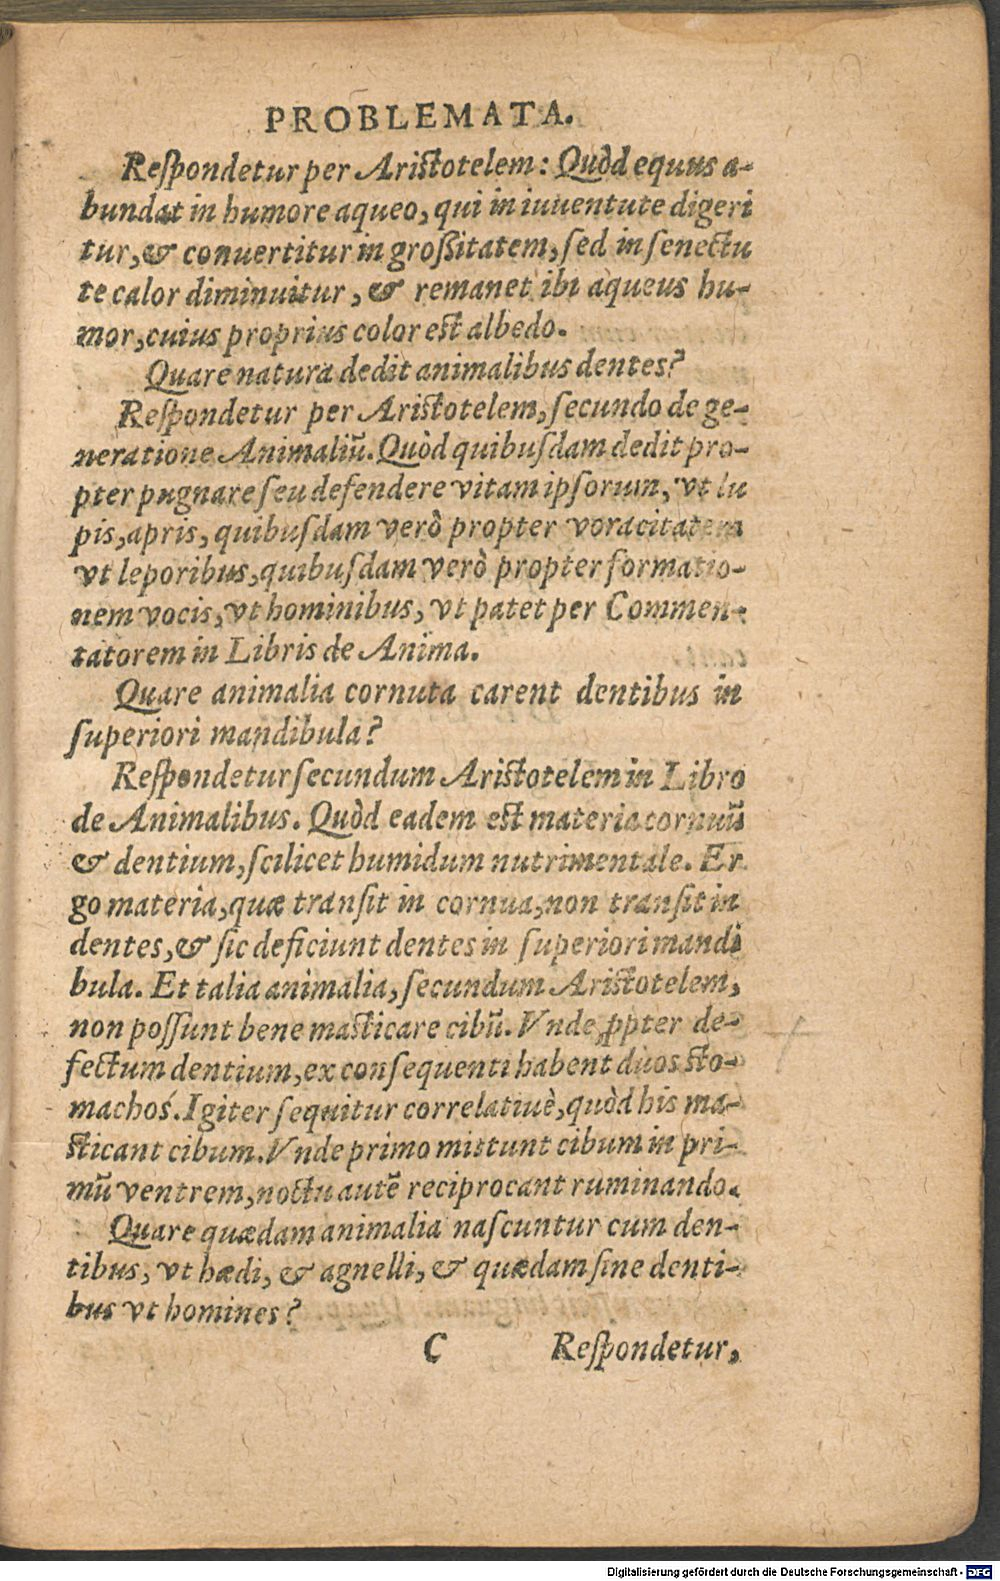 PROBLEMATA.
Reſpondetur per Ariſtotelem: Quòd equus a-
bundat in humore aqueo, qui in iuuentute digeri
tur, & conuertitur in groſsitatem, ſed in ſenectu
te calor diminuitur, & remanet ibi aqueus hu-
mor, cuius proprius color eſt albedo.
Quare natura dedit animalibus dentes?
Reſpondetur per Ariſtotelem, ſecundo de ge-
neratione Animaliū. Quòd quibuſdam dedit pro-
pter pugnare ſeu defendere vitam ipſorum, vt lu
pis, apris, quibuſdam verò propter voracitatem
vt leporibus, quibuſdam verò propter formatio-
nem vocis, vt hominibus, vt patet per Commen-
tatorem in Libris de Anima.
Quare animalia cornuta carent dentibus in
ſuperiori mandibula?
Reſpondetur ſecundum Ariſtotelem in Libro
de Animalibus. Quòd eadem eſt materia cornuū
& dentium, ſcilicet humidum nutrimentale. Er
go materia, quæ tranſit in cornua, non tranſit in
dentes, & ſic deficiunt dentes in ſuperiori mandi
bula. Et talia animalia, ſecundum Ariſtotelem,
non poſſunt bene maſticare cibū. Vnde ꝓpter de-
fectum dentium, ex conſequenti habent duos ſto-
machos. Igiter ſequitur correlatiuè, quòd his ma-
ſticant cibum. Vnde primo mittunt cibum in pri-
mū ventrem, noctu autē reciprocant ruminando.
Quare quædam animalia naſcuntur cum den-
tibus, vt hædi, & agnelli, & quædam ſine denti-
bus vt homines?
C Reſpondetur,
Digitalisierung gefördert durch die Deutsche Forschungsgemeinschaft - DFG